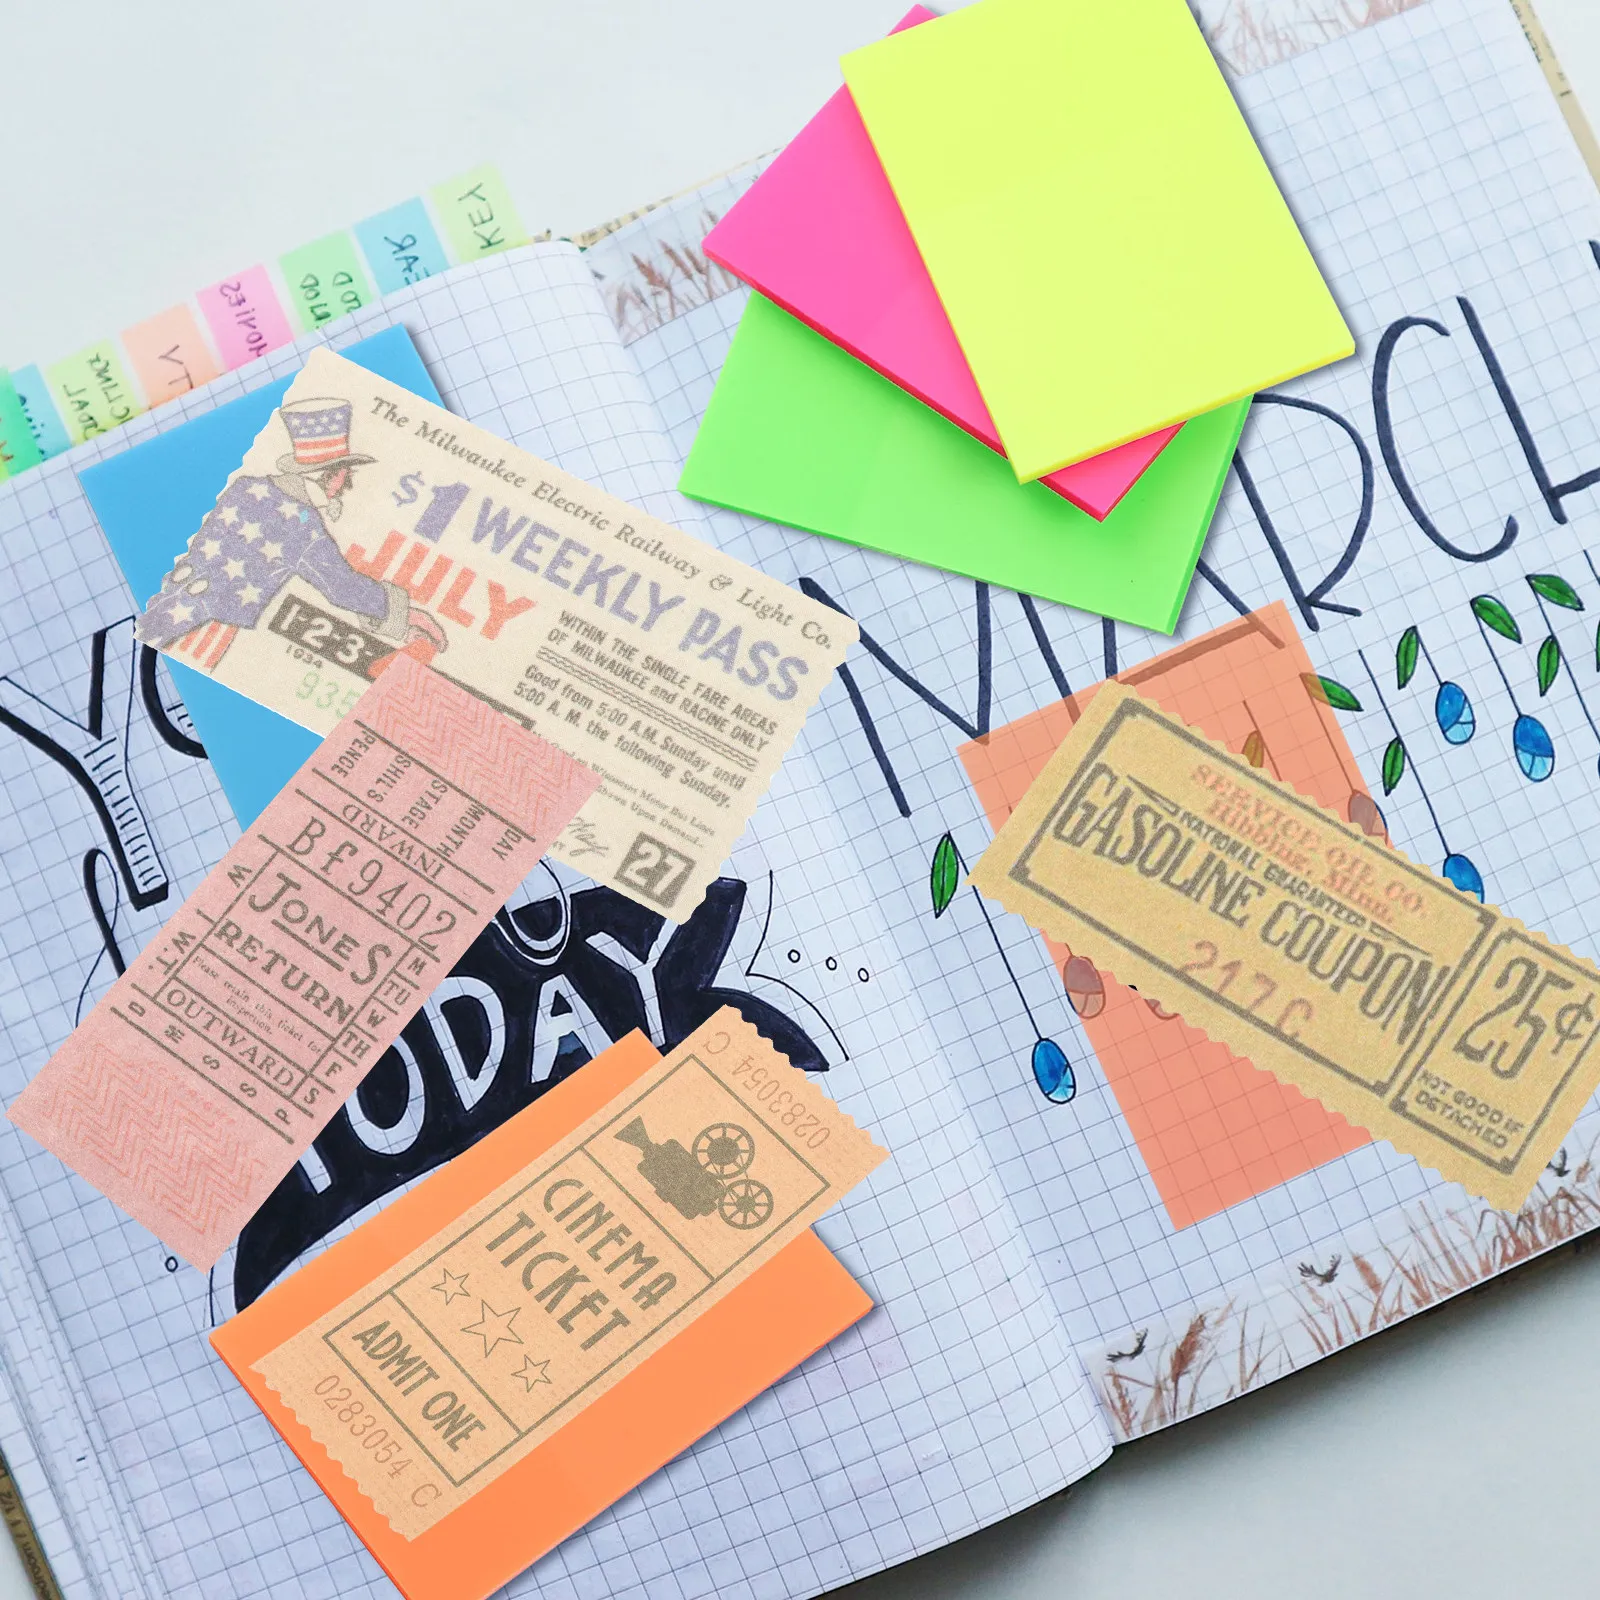 KEY
The Milwaukee Electric Railway & Light Co.
$1 WEEKLY PASS
JULY
WITHIN THE SINGLE FARE AREAS
OF MILWAUKEE and RACINE ONLY
Good from 5:00 A.M. Sunday until
5:00 A.M. the following Sunday.
Shown Upon Demand
1-2-3-
1934
935
27
DAY
MONTH
STAGE
SHIL'S
PENCE
INWARD
Bf9402
W
JONES
RETURN
Please retain this ticket for
inspection.
OUTWARD
M
TU
W
TH
F
S
MARCH
SERVICE OIL CO.
Hibbing, Minn.
NATIONAL GUARANTEED
GASOLINE COUPON
217 C
25¢
NOT GOOD IF
DETACHED
TODAY
0283054 C
CINEMA
TICKET
ADMIT ONE
0283054 C